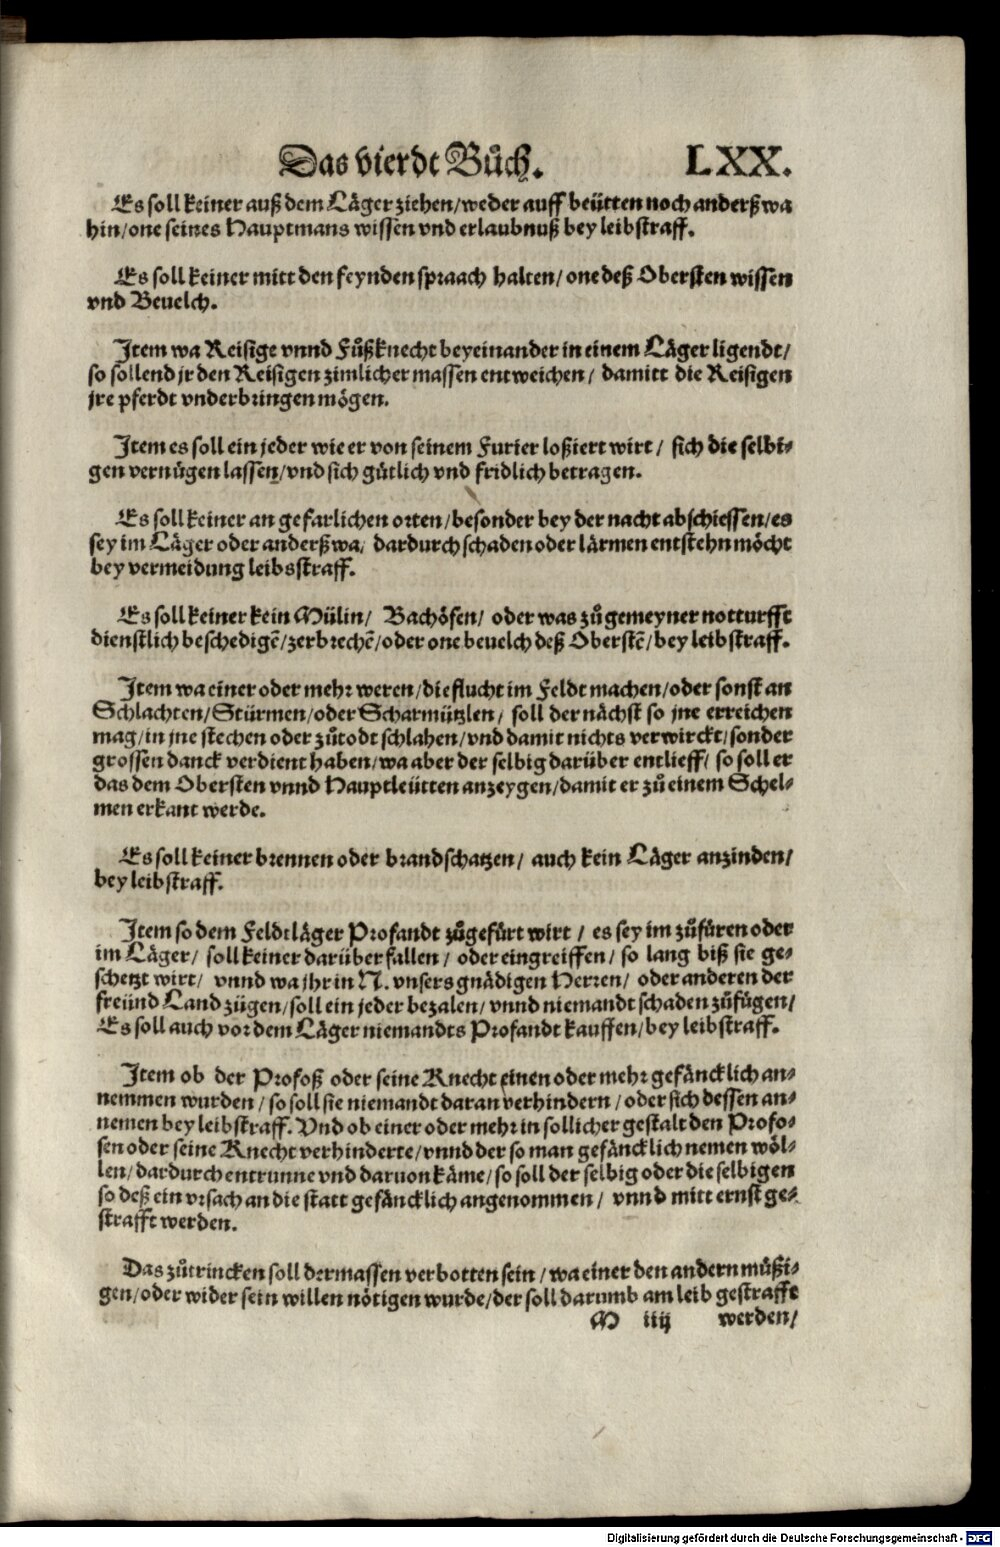 Das vierdt Bůch. LXX.
Es soll keiner auß dem Läger ziehen/weder auff beütten noch anderß wa
hin/one seines Hauptmans wissen vnd erlaubnuß bey leibstraff.
Es soll keiner mitt den feynden spraach halten/ one deß Obersten wissen
vnd Beuelch.
Item wa Reisige vnnd Fůßknecht beyeinander in einem Läger ligendt/
so sollend jr den Reisigen zimlicher massen entweichen/ damitt die Reisigen
jre pferdt vnderbringen mögen.
Item es soll ein jeder wie er von seinem Furier loßiert wirt/ sich die selbi-
gen vernügen lassen/vnd sich gütlich vnd fridlich betragen.
Es soll keiner an gefarlichen orten/besonder bey der nacht abschiessen/es
sey im Läger oder anderßwa/ dardurch schaden oder lärmen entstehn möcht
bey vermeidung leibsstraff.
Es soll keiner kein Mülin/ Bachöfen/ oder was zů gemeyner notturfft
dienstlich beschedigẽ/zerbrechẽ/oder one beuelch deß Oberstẽ/bey leibstraff.
Item wa einer oder mehr weren/die flucht im Feldt machen/oder sonst an
Schlachten/Stürmen/oder Scharmützlen/ soll der nächst so jne erreichen
mag/in jne stechen oder zůtodt schlahen/vnd damit nichts verwirckt/sonder
grossen danck verdient haben/wa aber der selbig darüber entlieff/ so soll er
das dem Obersten vnnd Hauptleütten anzeygen/damit er zů einem Schel-
men erkant werde.
Es soll keiner brennen oder brandschatzen/ auch kein Läger anzinden/
bey leibstraff.
Item so dem Feldtläger Profandt zůgefürt wirt/ es sey im zůfüren oder
im Läger/ soll keiner darüber fallen/ oder eingreiffen/ so lang biß sie ge-
schetzt wirt/ vnnd wa jhr in N. vnsers gnädigen Herren/ oder anderen der
freünd Land zügen/soll ein jeder bezalen/ vnnd niemandt schaden zůfügen/
Es soll auch vor dem Läger niemandts Profandt kauffen/bey leibstraff.
Item ob der Profoß oder seine Knecht einen oder mehr gefäncklich an-
nemmen wurden/ so soll sie niemandt daran verhindern/ oder sich dessen an-
nemen bey leibstraff. Vnd ob einer oder mehr in sollicher gestalt den Profo-
sen oder seine Knecht verhinderte/vnnd der so man gefäncklich nemen wöl-
len/dardurch entrunne vnd daruon käme/so soll der selbig oder die selbigen
so deß ein vrsach an die statt gefäncklich angenommen/ vnnd mitt ernst ge-
strafft werden.
Das zůtrincken soll dermassen verbotten sein/wa einer den andern müßi-
gen/oder wider sein willen nötigen wurde/der soll darumb am leib gestrafft
M iiij werden/
Digitalisierung gefördert durch die Deutsche Forschungsgemeinschaft - DFG